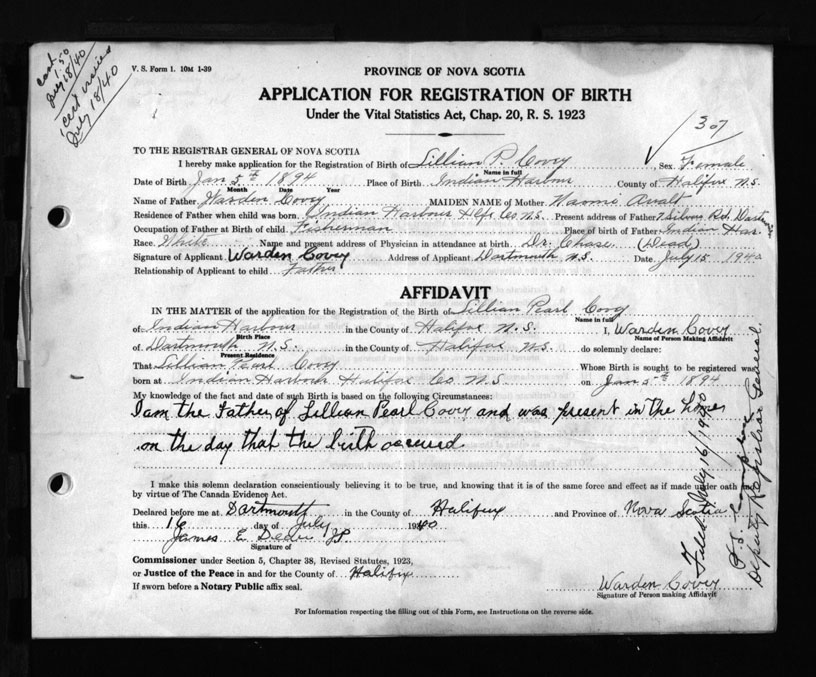 cert
1.50
July 18/40
cert issued
July 18/40
V. S. Form 1. 10M 1-39
PROVINCE OF NOVA SCOTIA
APPLICATION FOR REGISTRATION OF BIRTH
Under the Vital Statistics Act, Chap. 20, R. S. 1923
307
TO THE REGISTRAR GENERAL OF NOVA SCOTIA
I hereby make application for the Registration of Birth of Lillian P. Covey Sex Female
Name in full
Date of Birth Jan 5th 1894 Place of Birth Indian Harbour County of Halifax N.S.
Month Date Year
Name of Father Warden Covey MAIDEN NAME of Mother Naomie
Residence of Father when child was born Indian Harbour Hfx Co N.S. Present address of Father
Occupation of Father at Birth of child Fisherman Place of birth of Father Indian Har.
Race White Name and present address of Physician in attendance at birth Dr. Chase (Dead)
Signature of Applicant Warden Covey Address of Applicant Dartmouth N.S. Date July 15 1940
Relationship of Applicant to child Father
AFFIDAVIT
IN THE MATTER of the application for the Registration of the Birth of Lillian Pearl Covey
Name in full
of Indian Harbour in the County of Halifax N.S. I, Warden Covey
Birth Place Name of Person Making Affidavit
of Dartmouth N.S. in the County of Halifax N.S. do solemnly declare:
Present Residence
That Lillian Pearl Covey Whose Birth is sought to be registered was
born at Indian Harbour Halifax Co N.S. on Jan 5th 1894
My knowledge of the fact and date of such Birth is based on the following Circumstances:
I am the Father of Lillian Pearl Covey and was present in the home
on the day that the birth occured.
I make this solemn declaration conscientiously believing it to be true, and knowing that it is of the same force and effect as if made under oath and
by virtue of The Canada Evidence Act.
Declared before me at Dartmouth in the County of Halifax and Province of Nova Scotia
this 16 day of July 1940
James E. JP
Signature of
Commissioner under Section 5, Chapter 38, Revised Statutes, 1923,
or Justice of the Peace in and for the County of Halifax
If sworn before a Notary Public affix seal.
Warden Covey
Signature of Person making Affidavit
For Information respecting the filling out of this Form, see Instructions on the reverse side.
Filed July 16/1940
Deputy Registrar General.